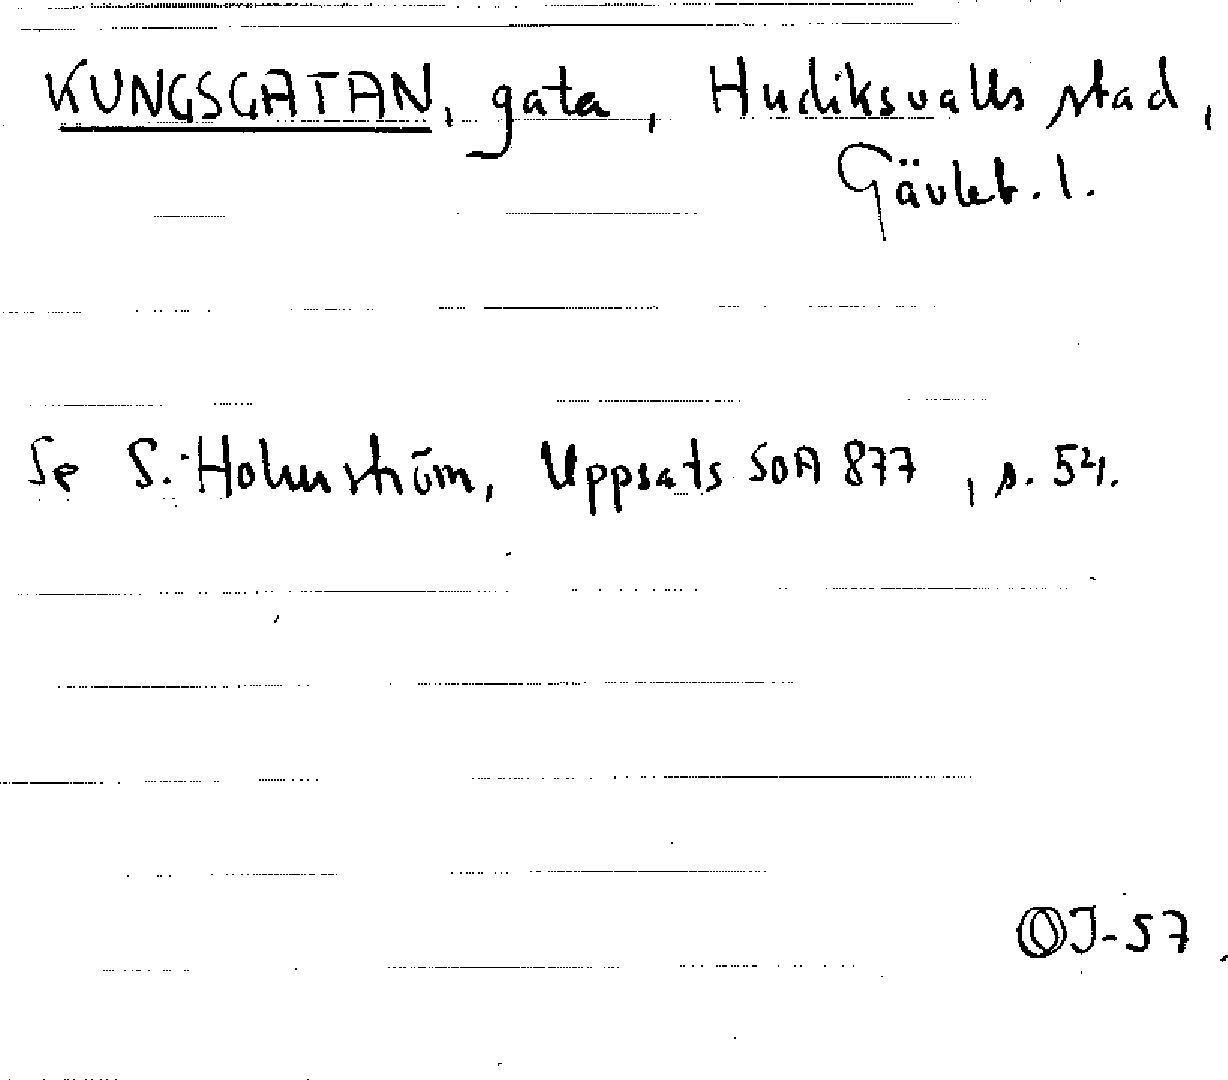 KUNGSGATAN, gata, Hudiksvalls stad,
Gävleb. l.
Se S. Holmström, Uppsats SOA 877, s. 54.
OJ-57